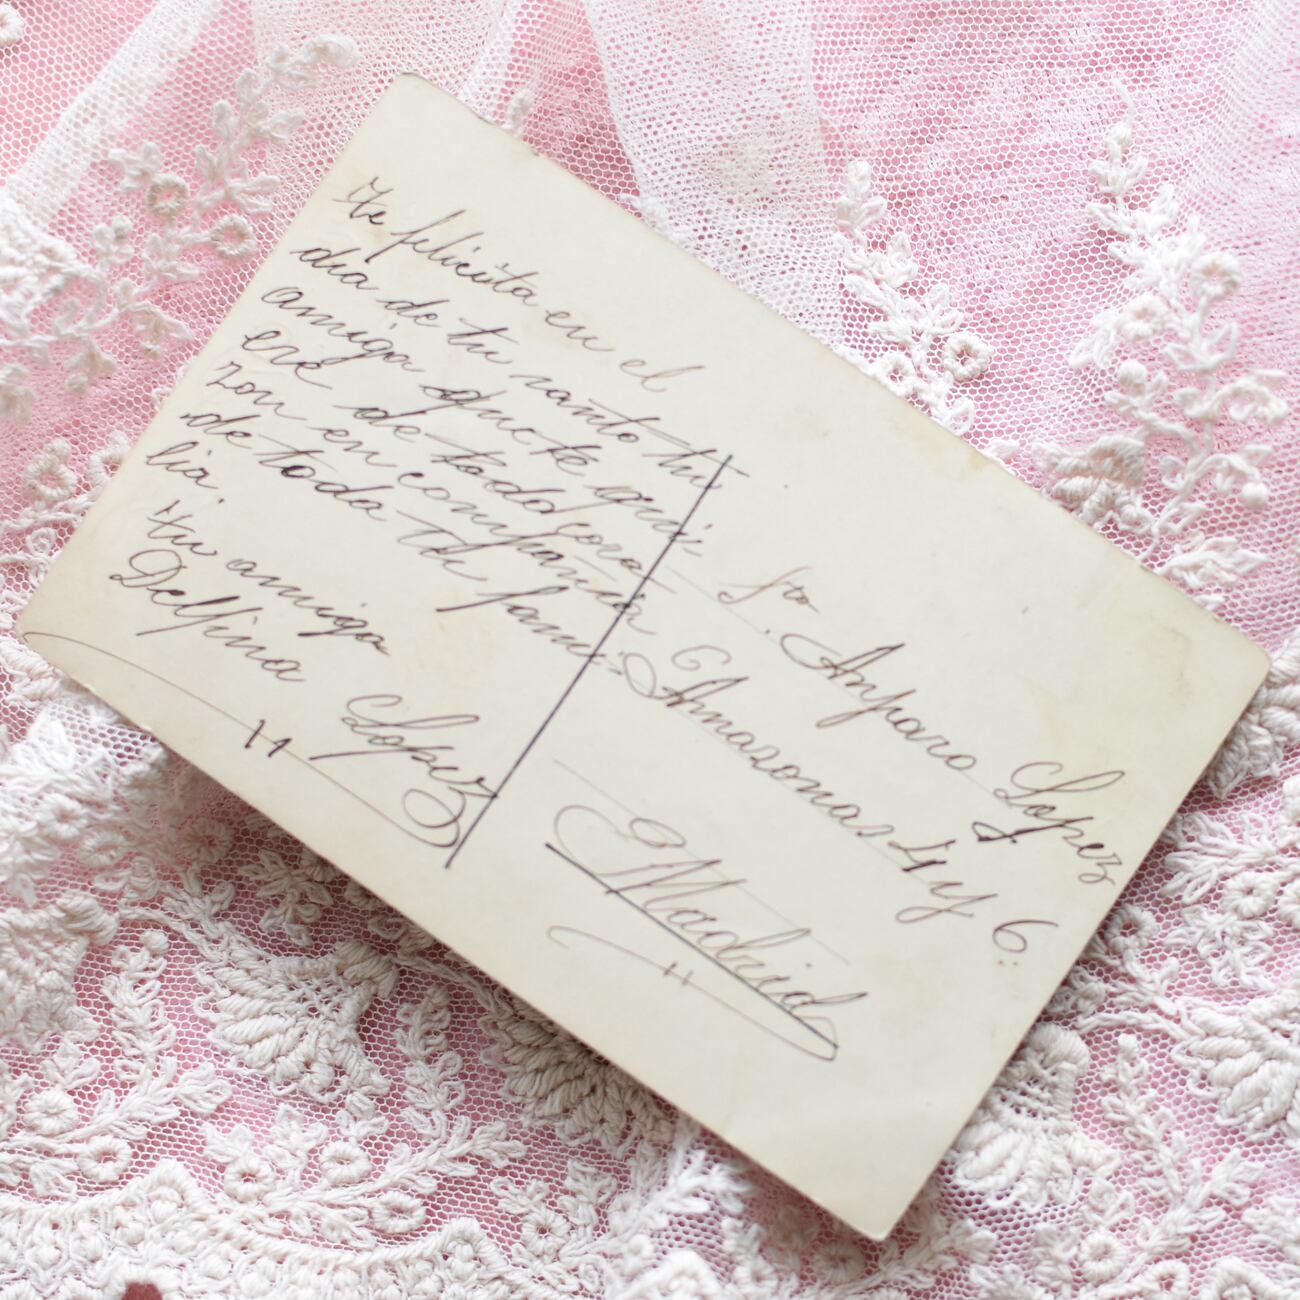 Te felicita en el
dia de tu santo tu
amiga que te qui-
ere de todo cora
zon en compania
de toda tu fami-
lia.
tu amiga
Delfina Lopez
Sta. Anparo Lopez
Amazonas 4 y 6.
Madrid